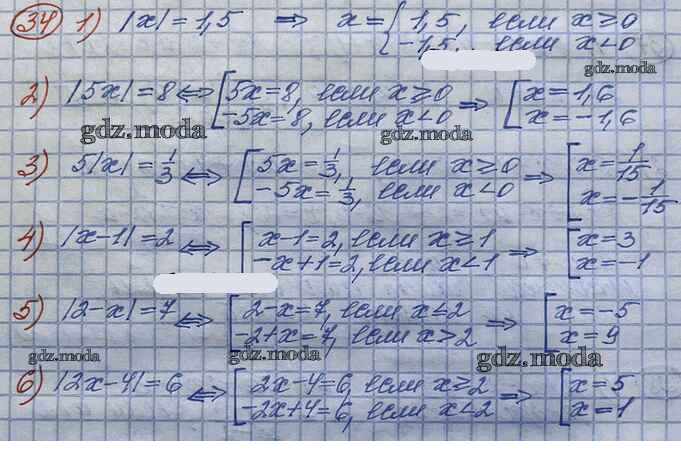 34 1) |x| = 1,5 ⇒ x = { 1,5, если x ≥ 0
-1,5, если x < 0
gdz.moda
2) |5x| = 8 ⇔ [ 5x = 8, если x ≥ 0
-5x = 8, если x < 0 ⇒ [ x = 1,6
x = -1,6
gdz.moda gdz.moda
3) 5|x| = 1/3 ⇔ [ 5x = 1/3, если x ≥ 0
-5x = 1/3, если x < 0 ⇒ [ x = 1/15
x = -1/15
4) |x-1| = 2 ⇔ [ x-1 = 2, если x ≥ 1
-x+1 = 2, если x < 1 ⇒ [ x = 3
x = -1
5) |2-x| = 7 ⇔ [ 2-x = 7, если x ≤ 2
-2+x = 7, если x > 2 ⇒ [ x = -5
x = 9
gdz.moda gdz.moda gdz.moda
6) |2x-4| = 6 ⇔ [ 2x-4 = 6, если x ≥ 2
-2x+4 = 6, если x < 2 ⇒ [ x = 5
x = 1
gdz.moda